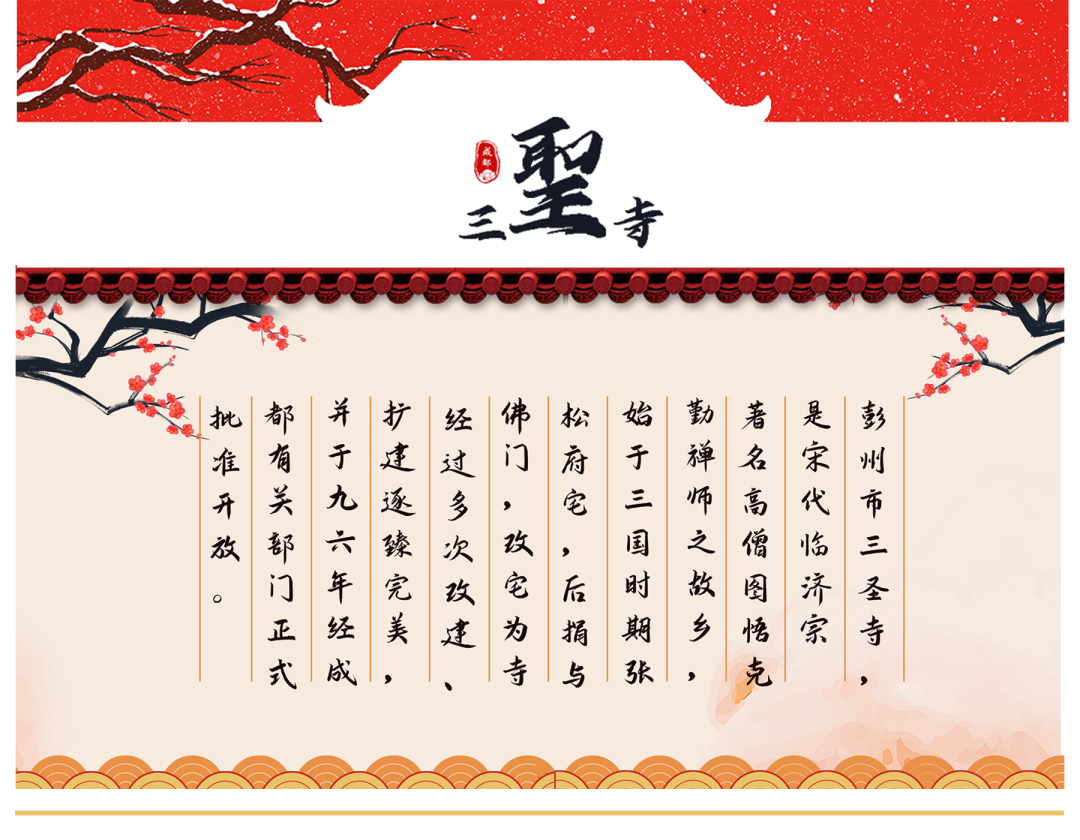 成都
三聖寺
彭州市三圣寺，
是宋代临济宗
著名高僧图悟克
勤禅师之故乡，
始于三国时期张
松府宅，后捐与
佛门，改宅为寺
经过多次改建、
扩建逐臻完美，
并于九六年经成
都有关部门正式
批准开放。